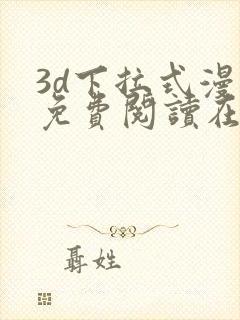 3d下拉式漫
免費閱讀在
聶姓